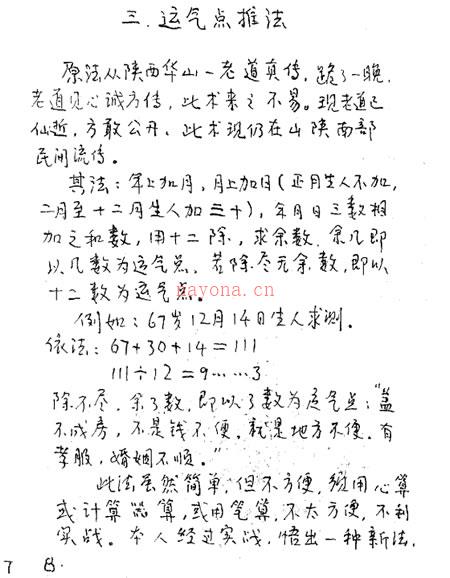 三.运气点推法
原法从陕西华山一老道真传,跪了一晚,
老道见心诚方传,此术来之不易。现老道已
仙逝,方敢公开、此术现仍在山陕南部
民间流传。
其法:年上加月,月上加日(正月生人不加,
二月至十二月生人加三十),年月日三数相
加之和数,用十二除,求余数.余几即
以几数为运气点.若除尽无余数,即以
十二数为运气点。
nayona.cn
例如:67岁12月14日生人求测.
依法:67+30+14=111
111÷12=9……3
除不尽.余3数,即以3数为运气点:"盖
不成房,不是钱不便.就是地方不便.有
孝服,婚姻不顺."
此法虽然简单,但不方便,须用心算
或计算器算,或用笔算,不太方便,不利
实战。本人经过实战,悟出一种新法,
78.